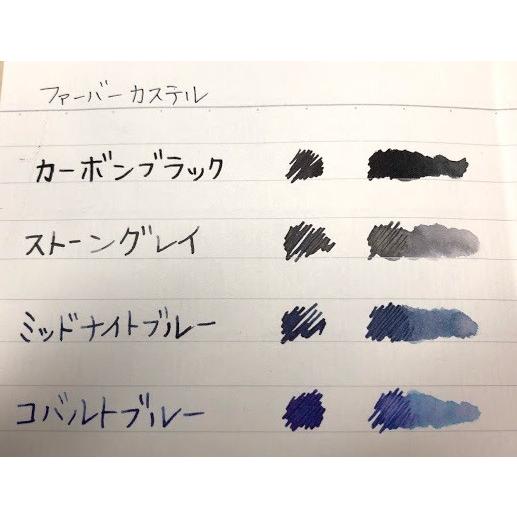 ファーバーカステル
カーボンブラック
ストーングレイ
ミッドナイトブルー
コバルトブルー